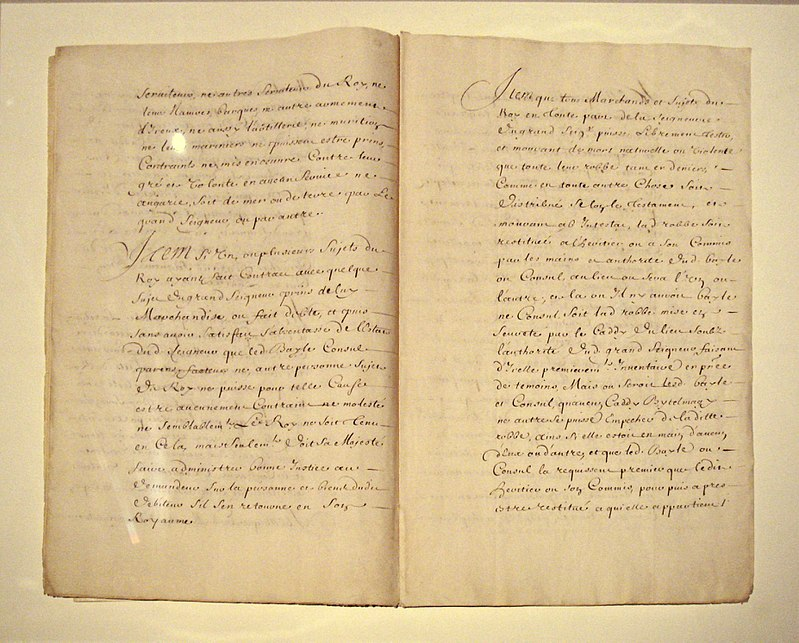 serviteurs, ne autres serviteurs du Roy, ne
leur Nauires, barques ne autre armement
d'Iceux, ne aussy L'artillerie, ne munition
ne leurs mariniers ne puissent estre prins,
Contraints, ne mis en oeuure Contre leur
gré et Volonté en aucun Seruice ne
angarie, soit de mer ou de terre par Le
grand Seigneur, ou par autre.
Item Si Vn, ou plusieurs Sujets du
Roy ayant fait Contract auec quelque
Sujet du grand Seigneur prins de luy
Marchandise ou fait debte, et puis
sans auoir Satisfait S'absentasse de l'estat
dud. Seigneur que led. Bayle Consul
parens facteurs ne autre personne Sujet
du Roy ne puisse pour telle Cause
estre aucunement Contraint ne molesté
ne Semblablemt. Le Roy ne soit tenu
en Cela, mais Seulemt. doit Sa Majesté
faire administrer bonne Justice au
demandeur Sur la personne et biens dudit
debiteur S'il S'en retourne en Son
Royaume.
Item que tous Marchands et Sujets du
Roy en toute part de la Seigneurie
du grand Seigr. puisse Librement tester,
et mourant de mort naturelle ou Violente
que toute leur robbe tant en deniers,
Comme en toute autre Chose Soit
distribué Selon le testament, et
mourant ab Intestat, lad. robbe Soit
restituée a l'heritier ou a Son Commis
par les mains et authorité dud. bayle
ou Consul au lieu ou Sera l'Vn ou
l'autre, et la ou Il n'y auroit bayle
ne Consul Soit lad. robbe mise en
Seureté par le Caddy du lieu Soubz
l'authorité dud. grand Seigneur faisant
d'Icelle premieremt. Inuentaire en pnce
de temoins, Mais ou Seroit Lesd. bayle
et Consul, qu'aucun Caddy Beytelmagy
ne autre Se puisse Empecher de ladite
robbe, ains Si elle estoit en main d'aucun
d'Eux ou d'autre, et que led. Bayle ou
Consul la requissent premier que ledit
heritier ou Son Commis, pour puis apres
estre restituée a qui elle appartient